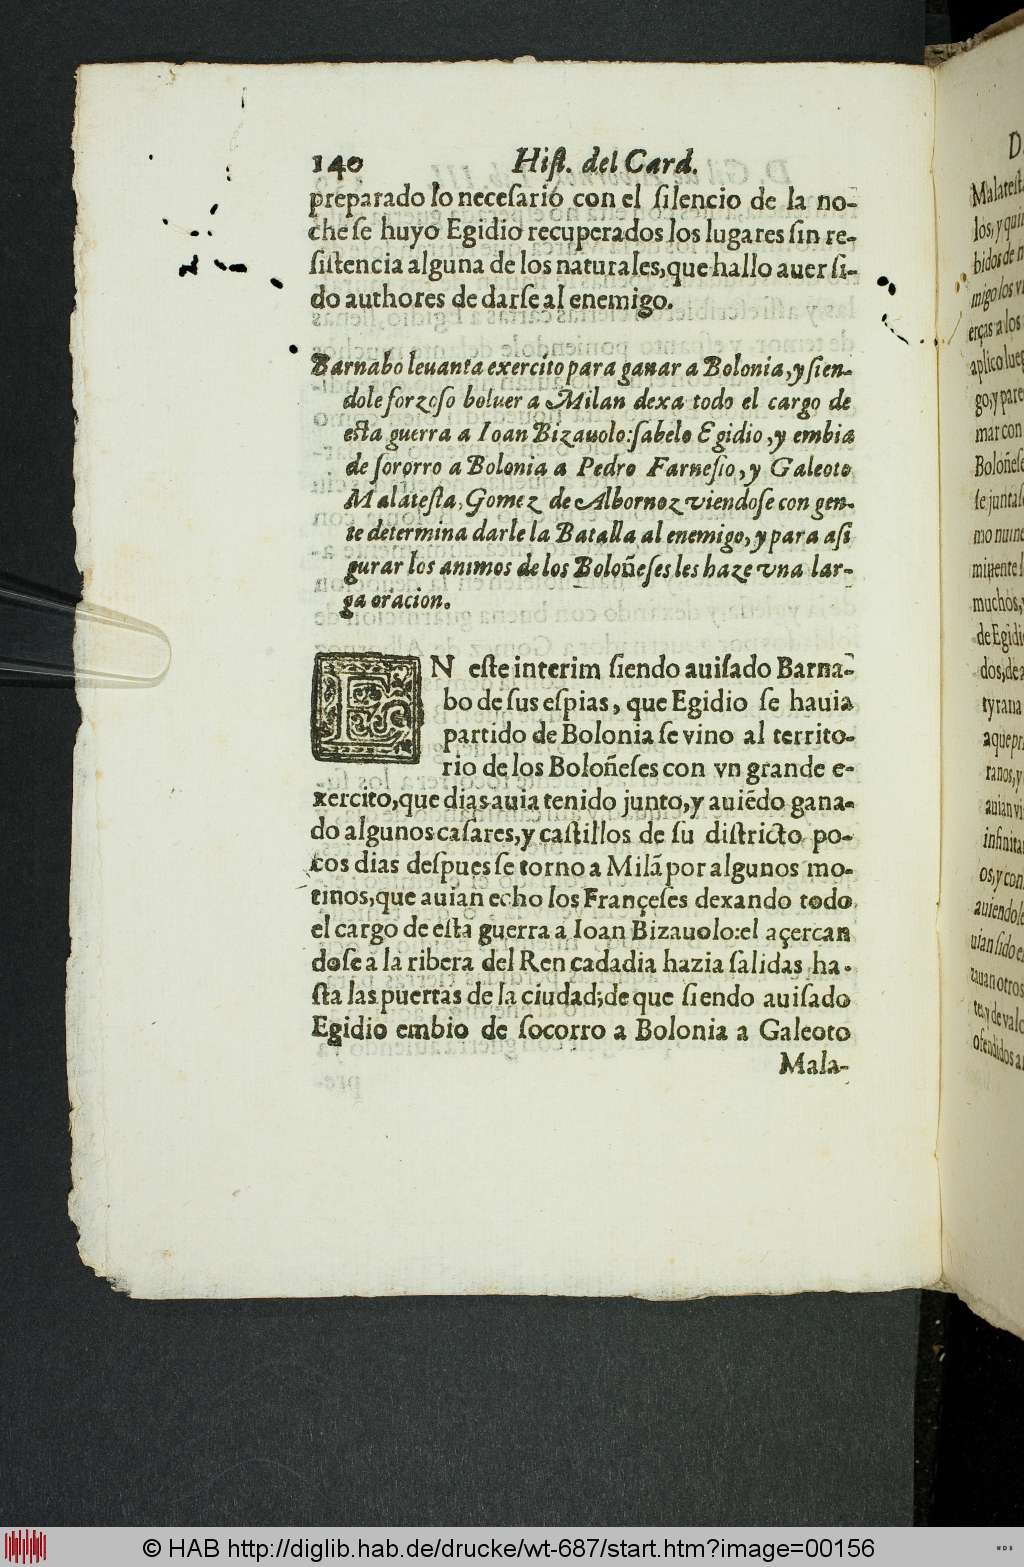 140 Hist. del Card.
preparado lo necesario con el silencio de la no-
che se huyo Egidio recuperados los lugares sin re-
sistencia alguna de los naturales, que hallo auer si-
do authores de darse al enemigo.
Barnabo leuanta exercito para ganar a Bolonia, y sien-
dole forzoso boluer a Milan dexa todo el cargo de
esta guerra a Ioan Bizauolo: sabelo Egidio, y embia
de sororro a Bolonia a Pedro Farnesio, y Galeoto
Malatesta, Gomez de Albornoz viendose con gen-
te determina darle la Batalla al enemigo, y para asi
gurar los animos de los Boloñeses les haze vna lar-
ga oracion.
EN este interim siendo auisado Barna-
bo de sus espias, que Egidio se hauia
partido de Bolonia se vino al territo-
rio de los Boloñeses con vn grande e-
xercito, que dias auia tenido junto, y auiẽdo gana-
do algunos casares, y castillos de su districto po-
cos dias despues se torno a Milã por algunos mo-
tinos, que auian echo los Françeses dexando todo
el cargo de esta guerra a Ioan Bizauolo: el açercan
dose a la ribera del Ren cadadia hazia salidas ha-
sta las puertas de la ciudad; de que siendo auisado
Egidio embio de socorro a Bolonia a Galeoto
Mala-
Malatest
los, y qui
bidos de
migo los v
erças a los
aplico lueg
go, y pare
mar con
Boloñese
se juntas
mo nuine
minente l
muchos,
de Egidi
dos; de
tyrana
a que pr
ranos, y
auian vi
infinita
os, y con
auiendole
uian sido e
tauan otros
tes, y de valo
ofendidos a
© HAB http://diglib.hab.de/drucke/wt-687/start.htm?image=00156